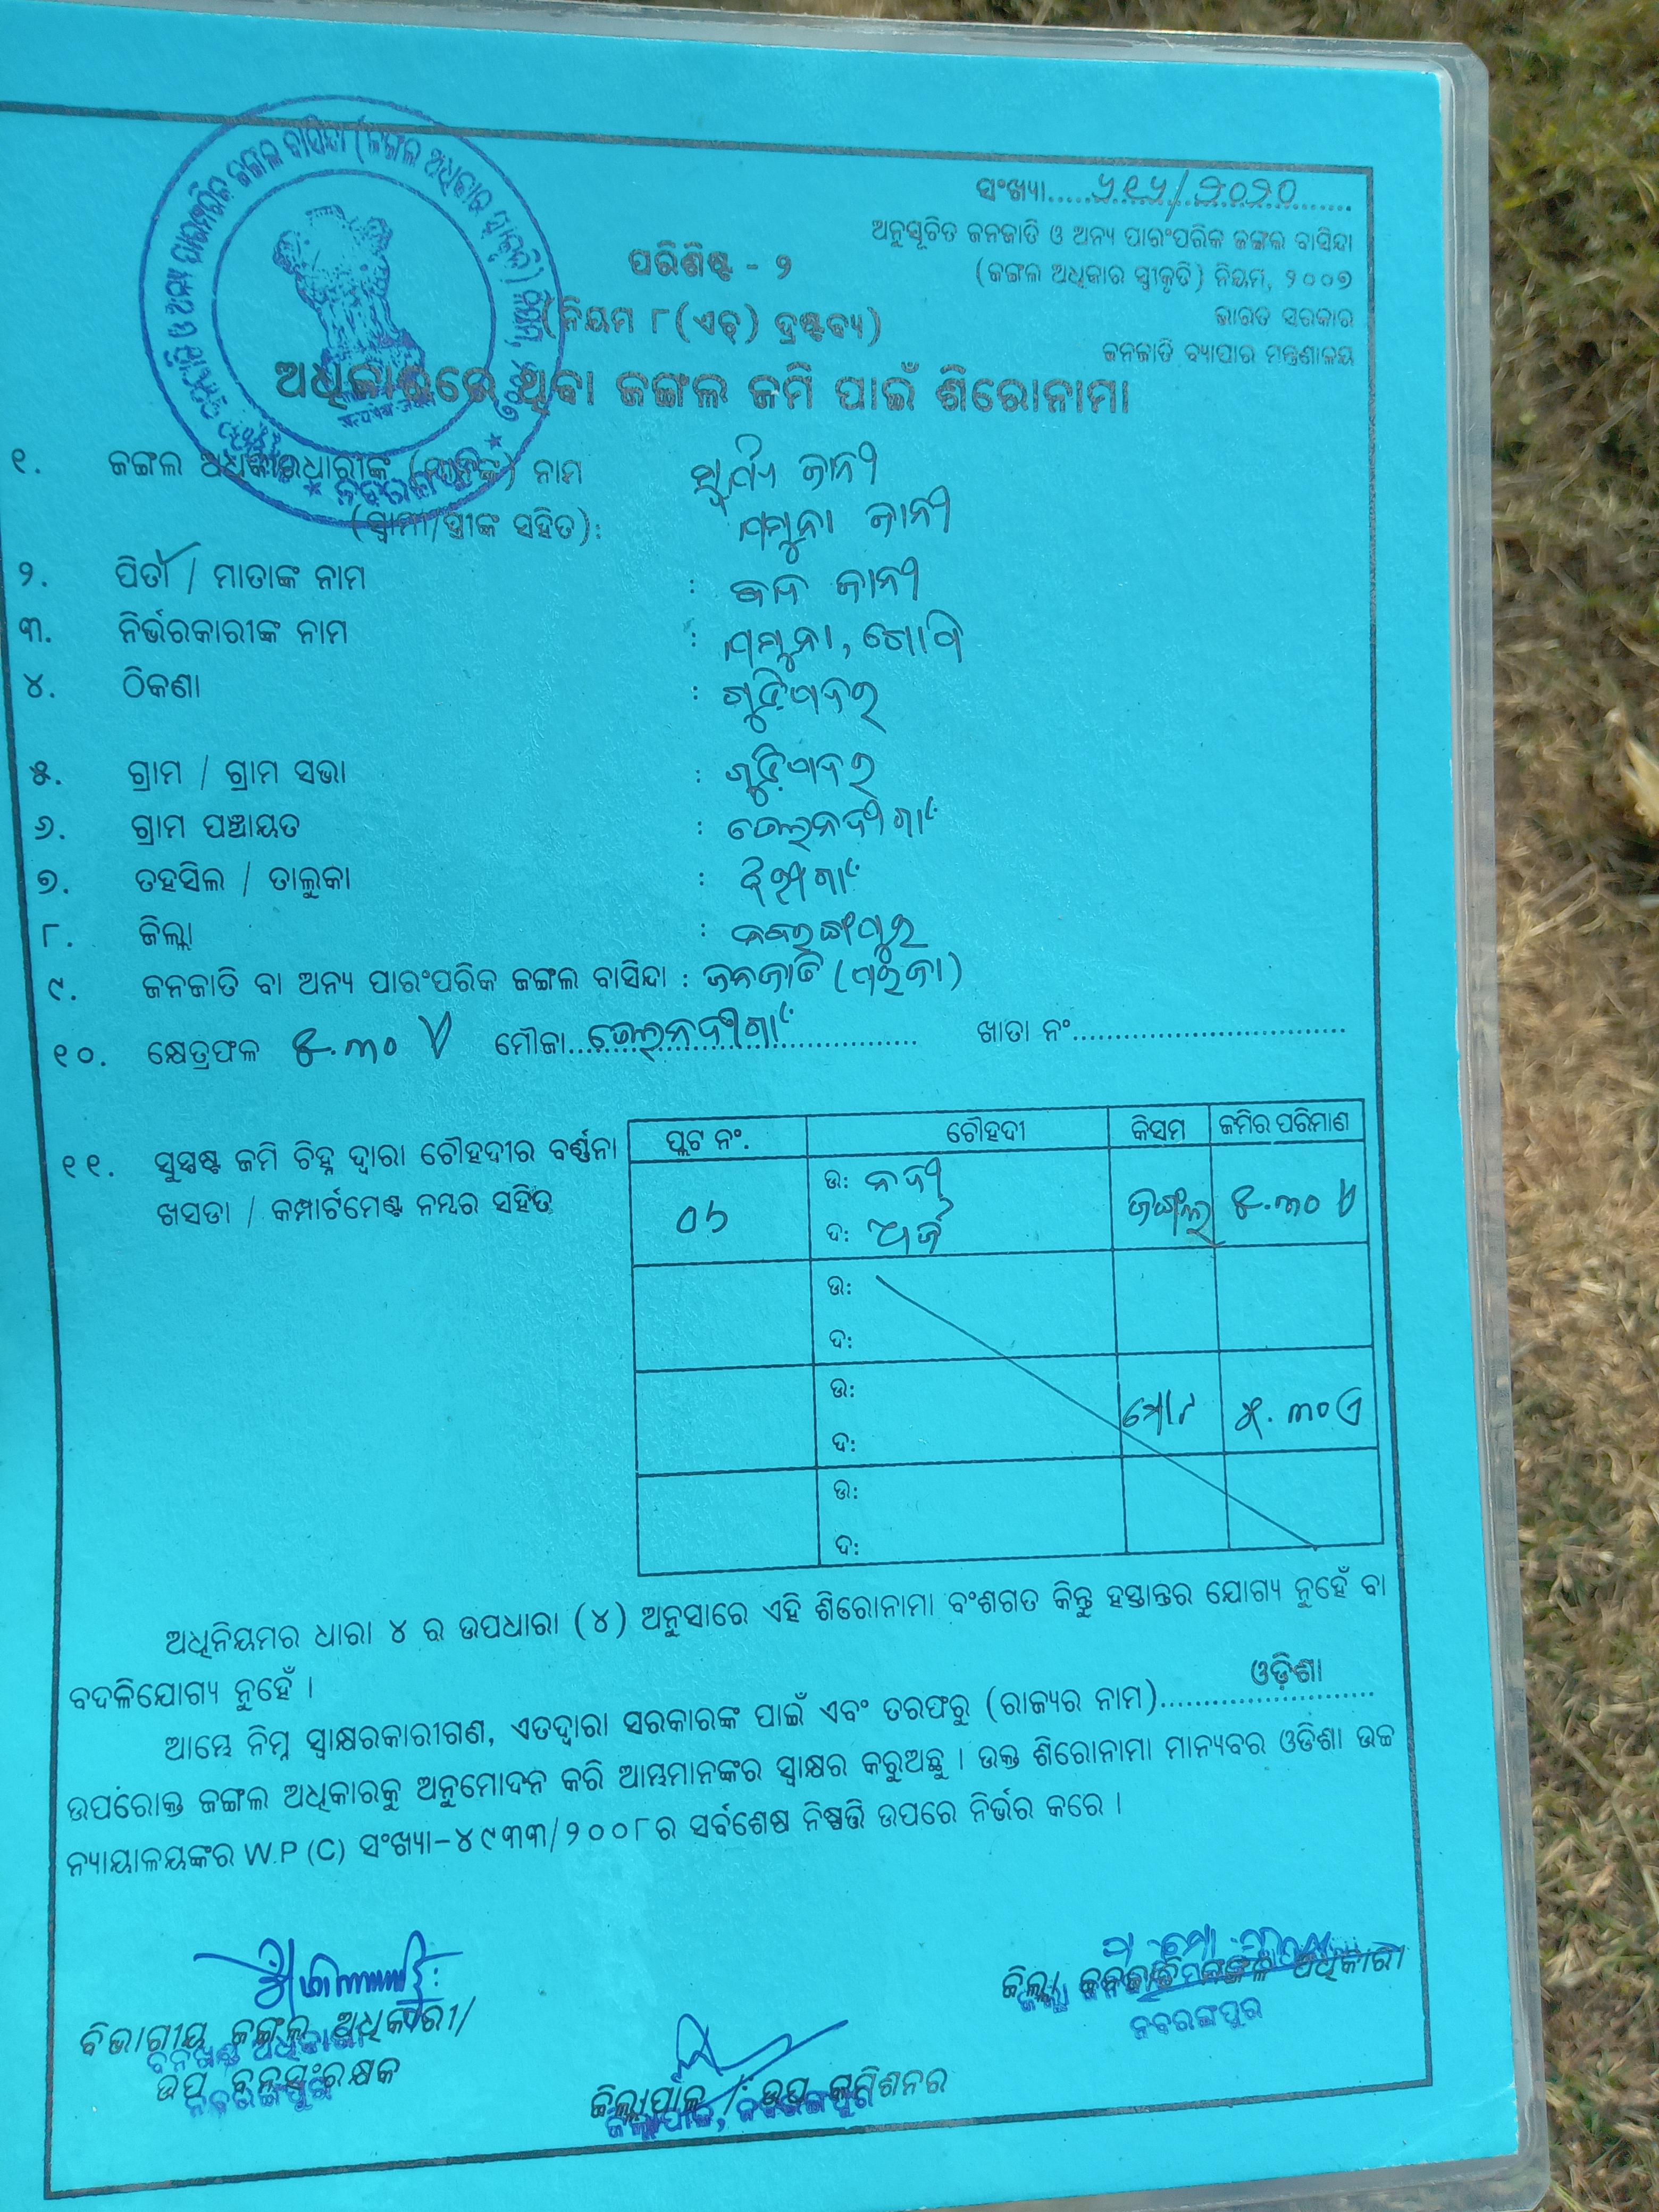 ସଂଖ୍ୟା..... ୪୧୪/୨୦୨୦
ଅନୁସୂଚିତ ଜନଜାତି ଓ ଅନ୍ୟ ପାରଂପରିକ ଜଙ୍ଗଲ ବାସିନ୍ଦା
(ଜଙ୍ଗଲ ଅଧିକାର ସ୍ୱୀକୃତି) ନିୟମ, ୨୦୦୭
ଭାରତ ସରକାର
ଜନଜାତି ବ୍ୟାପାର ମନ୍ତ୍ରଣାଳୟ
ପରିଶିଷ୍ଟ - ୨
(ନିୟମ ୮(ଏଚ୍) ଦ୍ରଷ୍ଟବ୍ୟ)
ଅଧିକାରରେ ଥିବା ଜଙ୍ଗଲ ଜମି ପାଇଁ ଶିରୋନାମା
୧. ଜଙ୍ଗଲ ଅଧିକାରଧାରୀଙ୍କ ନାମ ଜାନୀ
(ସ୍ୱାମୀ/ସ୍ତ୍ରୀଙ୍କ ସହିତ): ଯମୁନା ଜାନୀ
୨. ପିତା / ମାତାଙ୍କ ନାମ : ଜାନୀ
୩. ନିର୍ଭରକାରୀଙ୍କ ନାମ : ଯମୁନା, ଗୋପି
୪. ଠିକଣା :
୫. ଗ୍ରାମ / ଗ୍ରାମ ସଭା :
୬. ଗ୍ରାମ ପଞ୍ଚାୟତ :
୭. ତହସିଲ / ତାଲୁକା : ଝରିଗାଁ
୮. ଜିଲ୍ଲା : ନବରଙ୍ଗପୁର
୯. ଜନଜାତି ବା ଅନ୍ୟ ପାରଂପରିକ ଜଙ୍ଗଲ ବାସିନ୍ଦା : ଜନଜାତି (ପରଜା)
୧୦. କ୍ଷେତ୍ରଫଳ ୫.୩୦ ମୌଜା..... ଖାତା ନଂ.....
୧୧. ସୁସ୍ପଷ୍ଟ ଜମି ଚିହ୍ନ ଦ୍ୱାରା ଚୌହଦୀର ବର୍ଣ୍ଣନା
ଖସଡା / କମ୍ପାର୍ଟମେଣ୍ଟ ନମ୍ବର ସହିତ
ପ୍ଲଟ ନଂ. ଚୌହଦୀ କିସମ ଜମିର ପରିମାଣ
ଉ: ନଦୀ ଜଙ୍ଗଲ ୫.୩୦
ଦ:
ଉ:
ଦ:
ଉ: ମୋଟ ୫.୩୦ଏ
ଦ:
ଉ:
ଦ:
ଅଧିନିୟମର ଧାରା ୪ ର ଉପଧାରା (୪) ଅନୁସାରେ ଏହି ଶିରୋନାମା ବଂଶଗତ କିନ୍ତୁ ହସ୍ତାନ୍ତର ଯୋଗ୍ୟ ନୁହେଁ ବା
ବଦଳିଯୋଗ୍ୟ ନୁହେଁ ।
ଆମ୍ଭେ ନିମ୍ନ ସ୍ୱାକ୍ଷରକାରୀଗଣ, ଏତଦ୍ଦ୍ୱାରା ସରକାରଙ୍କ ପାଇଁ ଏବଂ ତରଫରୁ (ରାଜ୍ୟର ନାମ)..... ଓଡ଼ିଶା
ଉପରୋକ୍ତ ଜଙ୍ଗଲ ଅଧିକାରକୁ ଅନୁମୋଦନ କରି ଆମ୍ଭମାନଙ୍କର ସ୍ୱାକ୍ଷର କରୁଅଛୁ । ଉକ୍ତ ଶିରୋନାମା ମାନ୍ୟବର ଓଡିଶା ଉଚ୍ଚ
ନ୍ୟାୟାଳୟଙ୍କର W.P (C) ସଂଖ୍ୟା-୪୯୩୩/୨୦୦୮ର ସର୍ବଶେଷ ନିଷ୍ପତ୍ତି ଉପରେ ନିର୍ଭର କରେ ।
ବିଭାଗୀୟ ଜଙ୍ଗଲ ଅଧିକାରୀ/
ଉପ ବନସଂରକ୍ଷକ
ନବରଙ୍ଗପୁର
ଜିଲ୍ଲାପାଳ / ଉପ କମିଶନର
ଜିଲ୍ଲାପାଳ, ନବରଙ୍ଗପୁର
ଜିଲ୍ଲା ଜନଜାତି ମଙ୍ଗଳ ଅଧିକାରୀ
ନବରଙ୍ଗପୁର